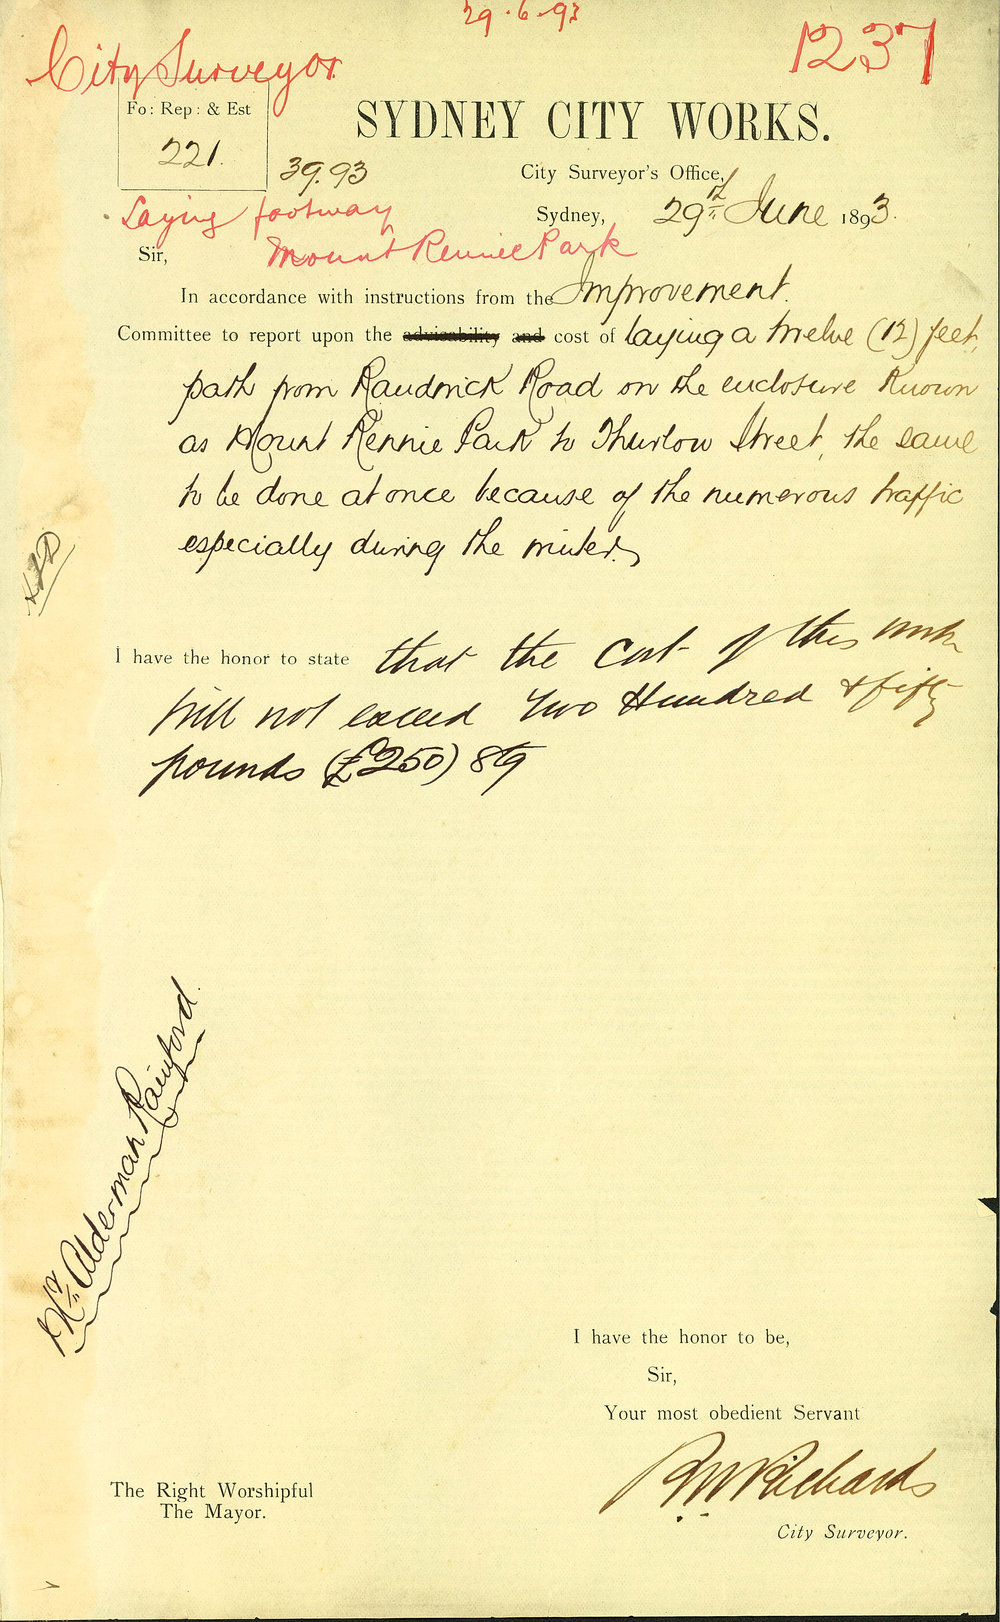 29.6.93
1237
City Surveyor
Fo: Rep: & Est
221.
39.93
SYDNEY CITY WORKS.
City Surveyor's Office,
Sydney, 29th June 1893.
Laying footway
Mount Rennie Park
Sir,
In accordance with instructions from the Improvement.
Committee to report upon the advisability and cost of laying a twelve (12) feet
path from Randwick Road on the enclosure known
as Mount Rennie Park to Thurlow Street, the same
to be done at once because of the numerous traffic
especially during the winter.
I have the honor to state that the cost of this work
will not exceed Two Hundred & fifty
pounds (£250) stg
Mr Alderman Rainford.
I have the honor to be,
Sir,
Your most obedient Servant
RWRichards
City Surveyor.
The Right Worshipful
The Mayor.